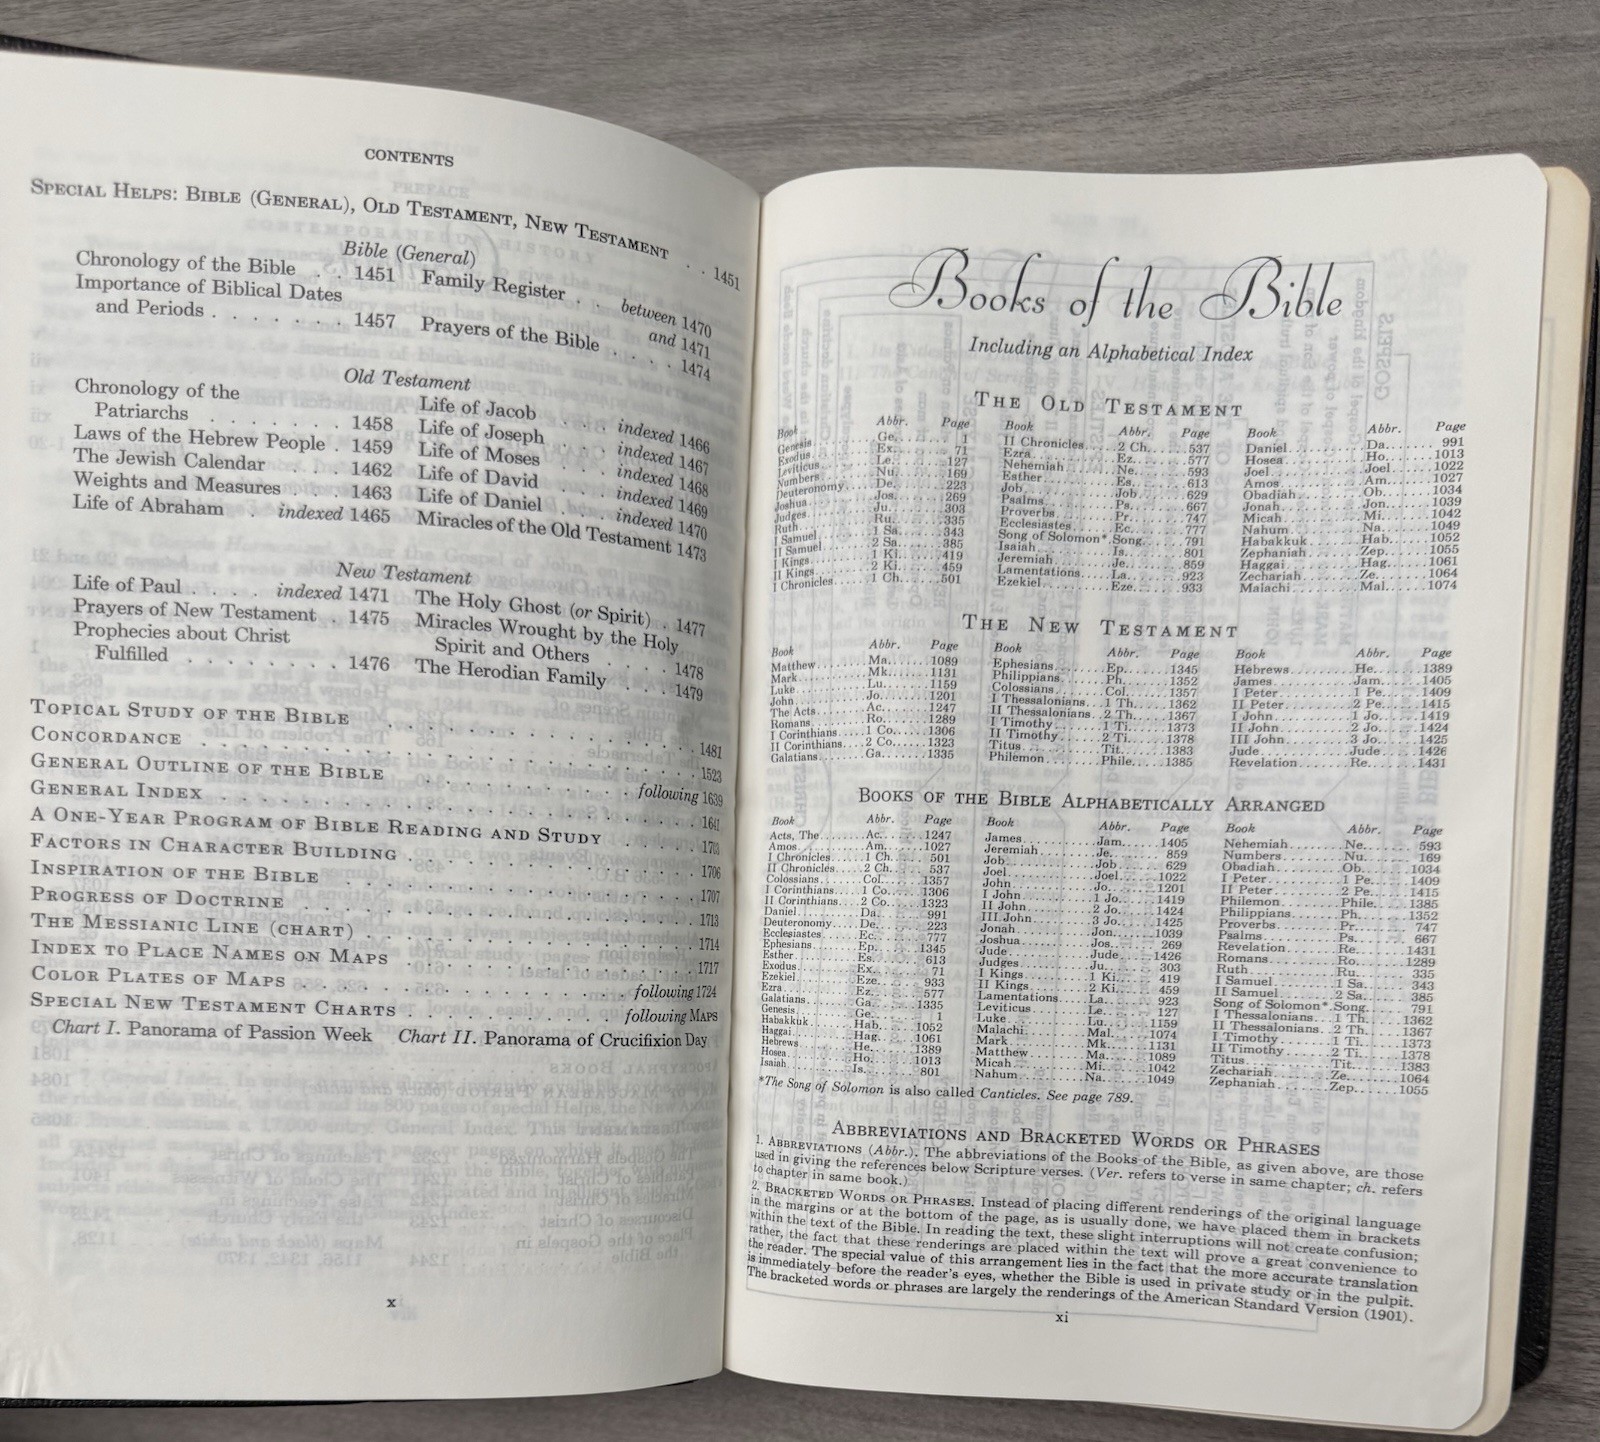 CONTENTS
SPECIAL HELPS: BIBLE (GENERAL), OLD TESTAMENT, NEW TESTAMENT . . 1451
Bible (General)
Chronology of the Bible . . 1451
Importance of Biblical Dates
and Periods . . . . . . . 1457
Family Register . . between 1470
and 1471
Prayers of the Bible . . . . 1474
Old Testament
Chronology of the
Patriarchs . . . . . . . 1458
Laws of the Hebrew People . 1459
The Jewish Calendar . . . 1462
Weights and Measures . . . 1463
Life of Abraham . indexed 1465
Life of Jacob . . . indexed 1466
Life of Joseph . . . indexed 1467
Life of Moses . . . indexed 1468
Life of David . . . indexed 1469
Life of Daniel . . . indexed 1470
Miracles of the Old Testament 1473
New Testament
Life of Paul . . . . indexed 1471
Prayers of New Testament . 1475
Prophecies about Christ
Fulfilled . . . . . . . . 1476
The Holy Ghost (or Spirit) . 1477
Miracles Wrought by the Holy
Spirit and Others . . . . 1478
The Herodian Family . . . 1479
TOPICAL STUDY OF THE BIBLE . . . . . . . . . . 1481
CONCORDANCE . . . . . . . . . . . . . . . 1523
GENERAL OUTLINE OF THE BIBLE . . . . . . . following 1639
GENERAL INDEX . . . . . . . . . . . . . . 1641
A ONE-YEAR PROGRAM OF BIBLE READING AND STUDY . . . . 1703
FACTORS IN CHARACTER BUILDING . . . . . . . . . 1706
INSPIRATION OF THE BIBLE . . . . . . . . . . . 1707
PROGRESS OF DOCTRINE . . . . . . . . . . . . 1713
THE MESSIANIC LINE (CHART) . . . . . . . . . . 1714
INDEX TO PLACE NAMES ON MAPS . . . . . . . . . 1717
COLOR PLATES OF MAPS . . . . . . . . . . following 1724
SPECIAL NEW TESTAMENT CHARTS . . . . . . . following MAPS
Chart I. Panorama of Passion Week Chart II. Panorama of Crucifixion Day
x
Books of the Bible
Including an Alphabetical Index
THE OLD TESTAMENT
Book Abbr. Page
Genesis Ge. 1
Exodus Ex. 71
Leviticus Le. 127
Numbers Nu. 169
Deuteronomy De. 223
Joshua Jos. 269
Judges Ju. 303
Ruth Ru. 335
I Samuel 1 Sa. 343
II Samuel 2 Sa. 385
I Kings 1 Ki. 419
II Kings 2 Ki. 459
I Chronicles 1 Ch. 501
Book Abbr. Page
II Chronicles 2 Ch. 537
Ezra Ez. 577
Nehemiah Ne. 593
Esther Es. 613
Job Job 629
Psalms Ps. 667
Proverbs Pr. 747
Ecclesiastes Ec. 777
Song of Solomon* Song 791
Isaiah Is. 801
Jeremiah Je. 859
Lamentations La. 923
Ezekiel Eze. 933
Book Abbr. Page
Daniel Da. 991
Hosea Ho. 1013
Joel Joel 1022
Amos Am. 1027
Obadiah Ob. 1034
Jonah Jon. 1039
Micah Mi. 1042
Nahum Na. 1049
Habakkuk Hab. 1052
Zephaniah Zep. 1055
Haggai Hag. 1061
Zechariah Ze. 1064
Malachi Mal. 1074
THE NEW TESTAMENT
Book Abbr. Page
Matthew Ma. 1089
Mark Mk. 1131
Luke Lu. 1159
John Jo. 1201
The Acts Ac. 1247
Romans Ro. 1289
I Corinthians 1 Co. 1306
II Corinthians 2 Co. 1323
Galatians Ga. 1335
Book Abbr. Page
Ephesians Ep. 1345
Philippians Ph. 1352
Colossians Col. 1357
I Thessalonians 1 Th. 1362
II Thessalonians 2 Th. 1367
I Timothy 1 Ti. 1373
II Timothy 2 Ti. 1378
Titus Tit. 1383
Philemon Phile. 1385
Book Abbr. Page
Hebrews He. 1389
James Jam. 1405
I Peter 1 Pe. 1409
II Peter 2 Pe. 1415
I John 1 Jo. 1419
II John 2 Jo. 1424
III John 3 Jo. 1425
Jude Jude 1426
Revelation Re. 1431
BOOKS OF THE BIBLE ALPHABETICALLY ARRANGED
Book Abbr. Page
Acts, The Ac. 1247
Amos Am. 1027
I Chronicles 1 Ch. 501
II Chronicles 2 Ch. 537
Colossians Col. 1357
I Corinthians 1 Co. 1306
II Corinthians 2 Co. 1323
Daniel Da. 991
Deuteronomy De. 223
Ecclesiastes Ec. 777
Ephesians Ep. 1345
Esther Es. 613
Exodus Ex. 71
Ezekiel Eze. 933
Ezra Ez. 577
Galatians Ga. 1335
Genesis Ge. 1
Habakkuk Hab. 1052
Haggai Hag. 1061
Hebrews He. 1389
Hosea Ho. 1013
Isaiah Is. 801
Book Abbr. Page
James Jam. 1405
Jeremiah Je. 859
Job Job 629
Joel Joel 1022
John Jo. 1201
I John 1 Jo. 1419
II John 2 Jo. 1424
III John 3 Jo. 1425
Jonah Jon. 1039
Joshua Jos. 269
Jude Jude 1426
Judges Ju. 303
I Kings 1 Ki. 419
II Kings 2 Ki. 459
Lamentations La. 923
Leviticus Le. 127
Luke Lu. 1159
Malachi Mal. 1074
Mark Mk. 1131
Matthew Ma. 1089
Micah Mi. 1042
Nahum Na. 1049
Book Abbr. Page
Nehemiah Ne. 593
Numbers Nu. 169
Obadiah Ob. 1034
I Peter 1 Pe. 1409
II Peter 2 Pe. 1415
Philemon Phile. 1385
Philippians Ph. 1352
Proverbs Pr. 747
Psalms Ps. 667
Revelation Re. 1431
Romans Ro. 1289
Ruth Ru. 335
I Samuel 1 Sa. 343
II Samuel 2 Sa. 385
Song of Solomon* Song 791
I Thessalonians 1 Th. 1362
II Thessalonians 2 Th. 1367
I Timothy 1 Ti. 1373
II Timothy 2 Ti. 1378
Titus Tit. 1383
Zechariah Ze. 1064
Zephaniah Zep. 1055
*The Song of Solomon is also called Canticles. See page 789.
ABBREVIATIONS AND BRACKETED WORDS OR PHRASES
1. ABBREVIATIONS (Abbr.). The abbreviations of the Books of the Bible, as given above, are those
used in giving the references below Scripture verses. (Ver. refers to verse in same chapter; ch. refers
to chapter in same book.)
2. BRACKETED WORDS OR PHRASES. Instead of placing different renderings of the original language
in the margins or at the bottom of the page, as is usually done, we have placed them in brackets
within the text of the Bible. In reading the text, these slight interruptions will not create confusion;
rather, the fact that these renderings are placed within the text will prove a great convenience to
the reader. The special value of this arrangement lies in the fact that the more accurate translation
is immediately before the reader's eyes, whether the Bible is used in private study or in the pulpit.
The bracketed words or phrases are largely the renderings of the American Standard Version (1901).
xi